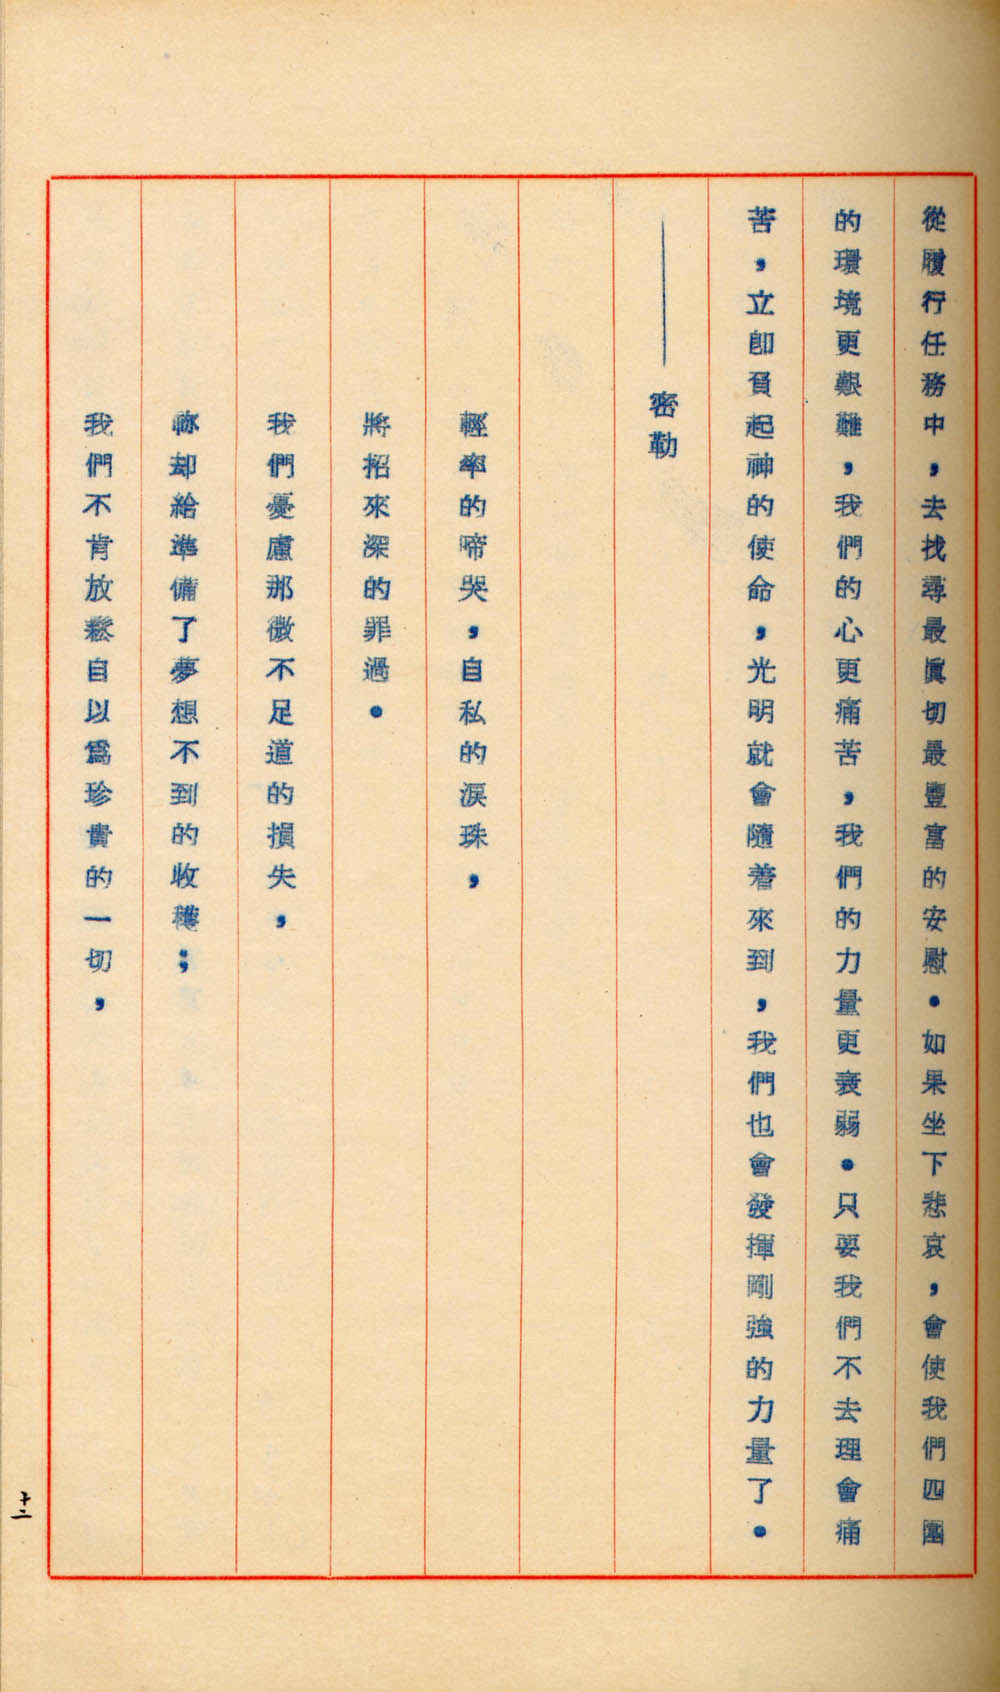 從履行任務中，去找尋最眞切最豐富的安慰。如果坐下悲哀，會使我們四圍
的環境更艱難，我們的心更痛苦，我們的力量更衰弱。只要我們不去理會痛
苦，立卽負起神的使命，光明就會隨着來到，我們也會發揮剛強的力量了。
——密勒
輕率的啼哭，自私的淚珠，
將招來深的罪過。
我們憂慮那微不足道的損失，
祢却給準備了夢想不到的收穫；
我們不肯放鬆自以爲珍貴的一切，
十二